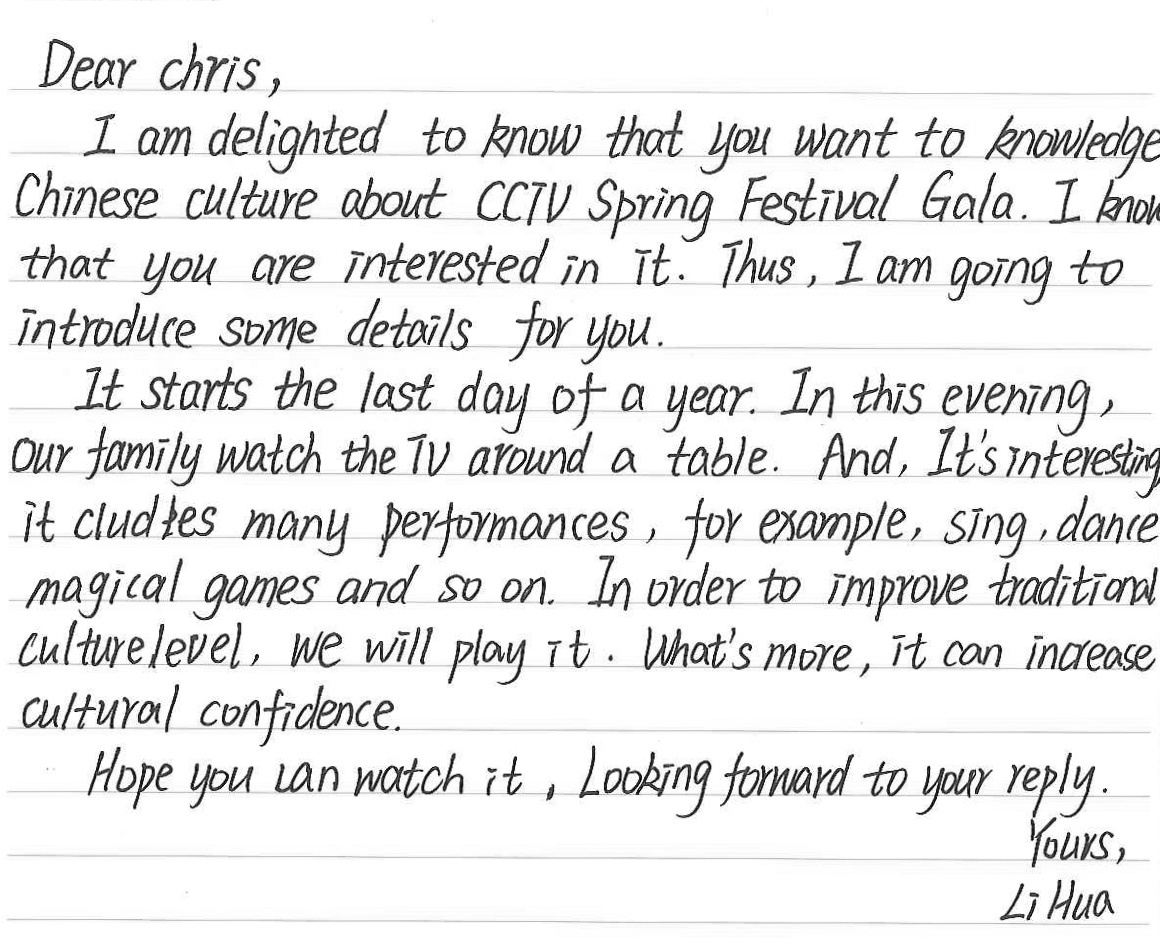 Dear chris,
I am delighted to know that you want to knowledge
Chinese culture about CCTV Spring Festival Gala. I know
that you are interested in it. Thus, I am going to
introduce some details for you.
It starts the last day of a year. In this evening,
our family watch the TV around a table. And, It's interesting,
it cludes many performances, for example, sing, dance
magical games and so on. In order to improve traditional
culture level, we will play it. What's more, it can increase
cultural confidence.
Hope you can watch it, Looking forward to your reply.
Yours,
Li Hua